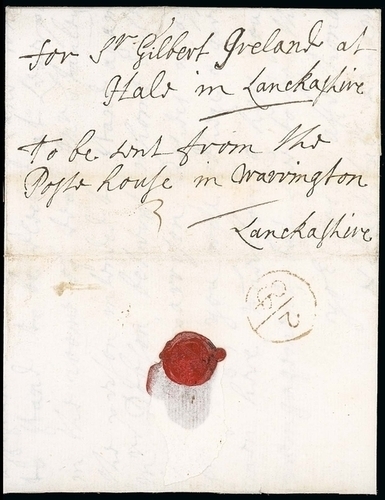 for Sr Gilbert Ireland at
Hale in Lanckashire
To be sent from the
Poste house in Warrington
3
Lanckashire